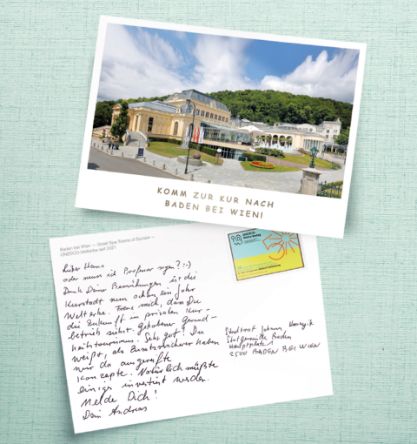 KOMM ZUR KUR NACH
BADEN BEI WIEN!
Baden bei Wien — Great Spa Towns of Europe –
UNESCO Welterbe seit 2021
Lieber Hans
oder muss ich Professor sagen? :-)
Dank Deiner Bemühungen ist die
Kurstadt nun schon ein Jahr
Welterbe. Freue mich, dass Du
die Zukunft in privaten Kur-
betrieb siehst. Gehobener Gesund-
heitstourismus. Sehr gut! Du
weißt, als Zusatzversicherer haben
wir da ausgereifte
Konzepte. Natürlich müsste
einiges investiert werden.
Melde Dich!
Dein Andreas
Stadtrat Johann
Stadtgemeinde Baden
Hauptplatz 1
2500 BADEN BEI WIEN